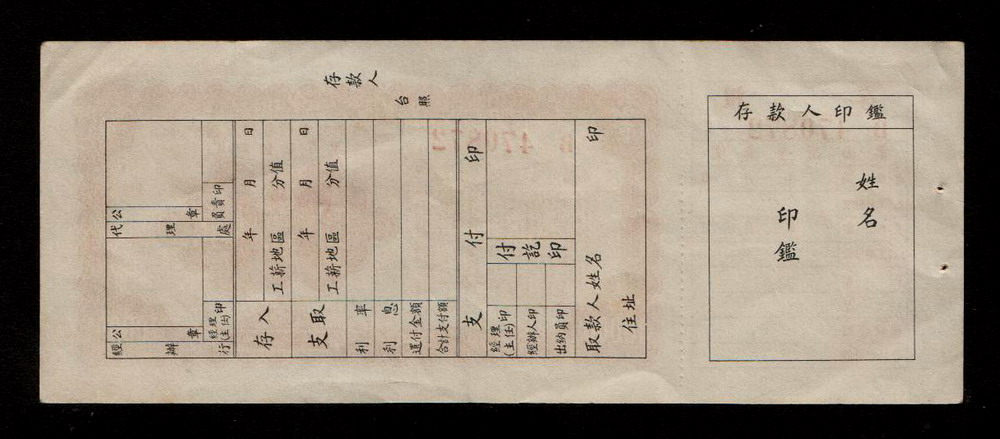 存款人
台照
經辦行
公章
經理(主任)印
代理處
公章
員責印
存入
年 月 日
工薪地區 分值
支取
年 月 日
工薪地區 分值
利率
利息
還付金額
合計支付額
支付 印
經理(主任)印
付訖印
經辦人印
出納員印
取款人姓名 印
住址
存款人印鑑
姓名
印鑑